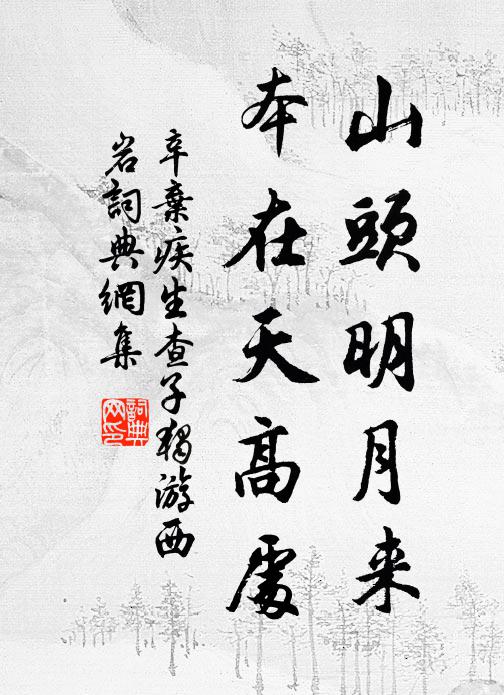 山頭明月来
本在天高處
辛棄疾生查子獨游西
岩詞典網集
詞典
网印